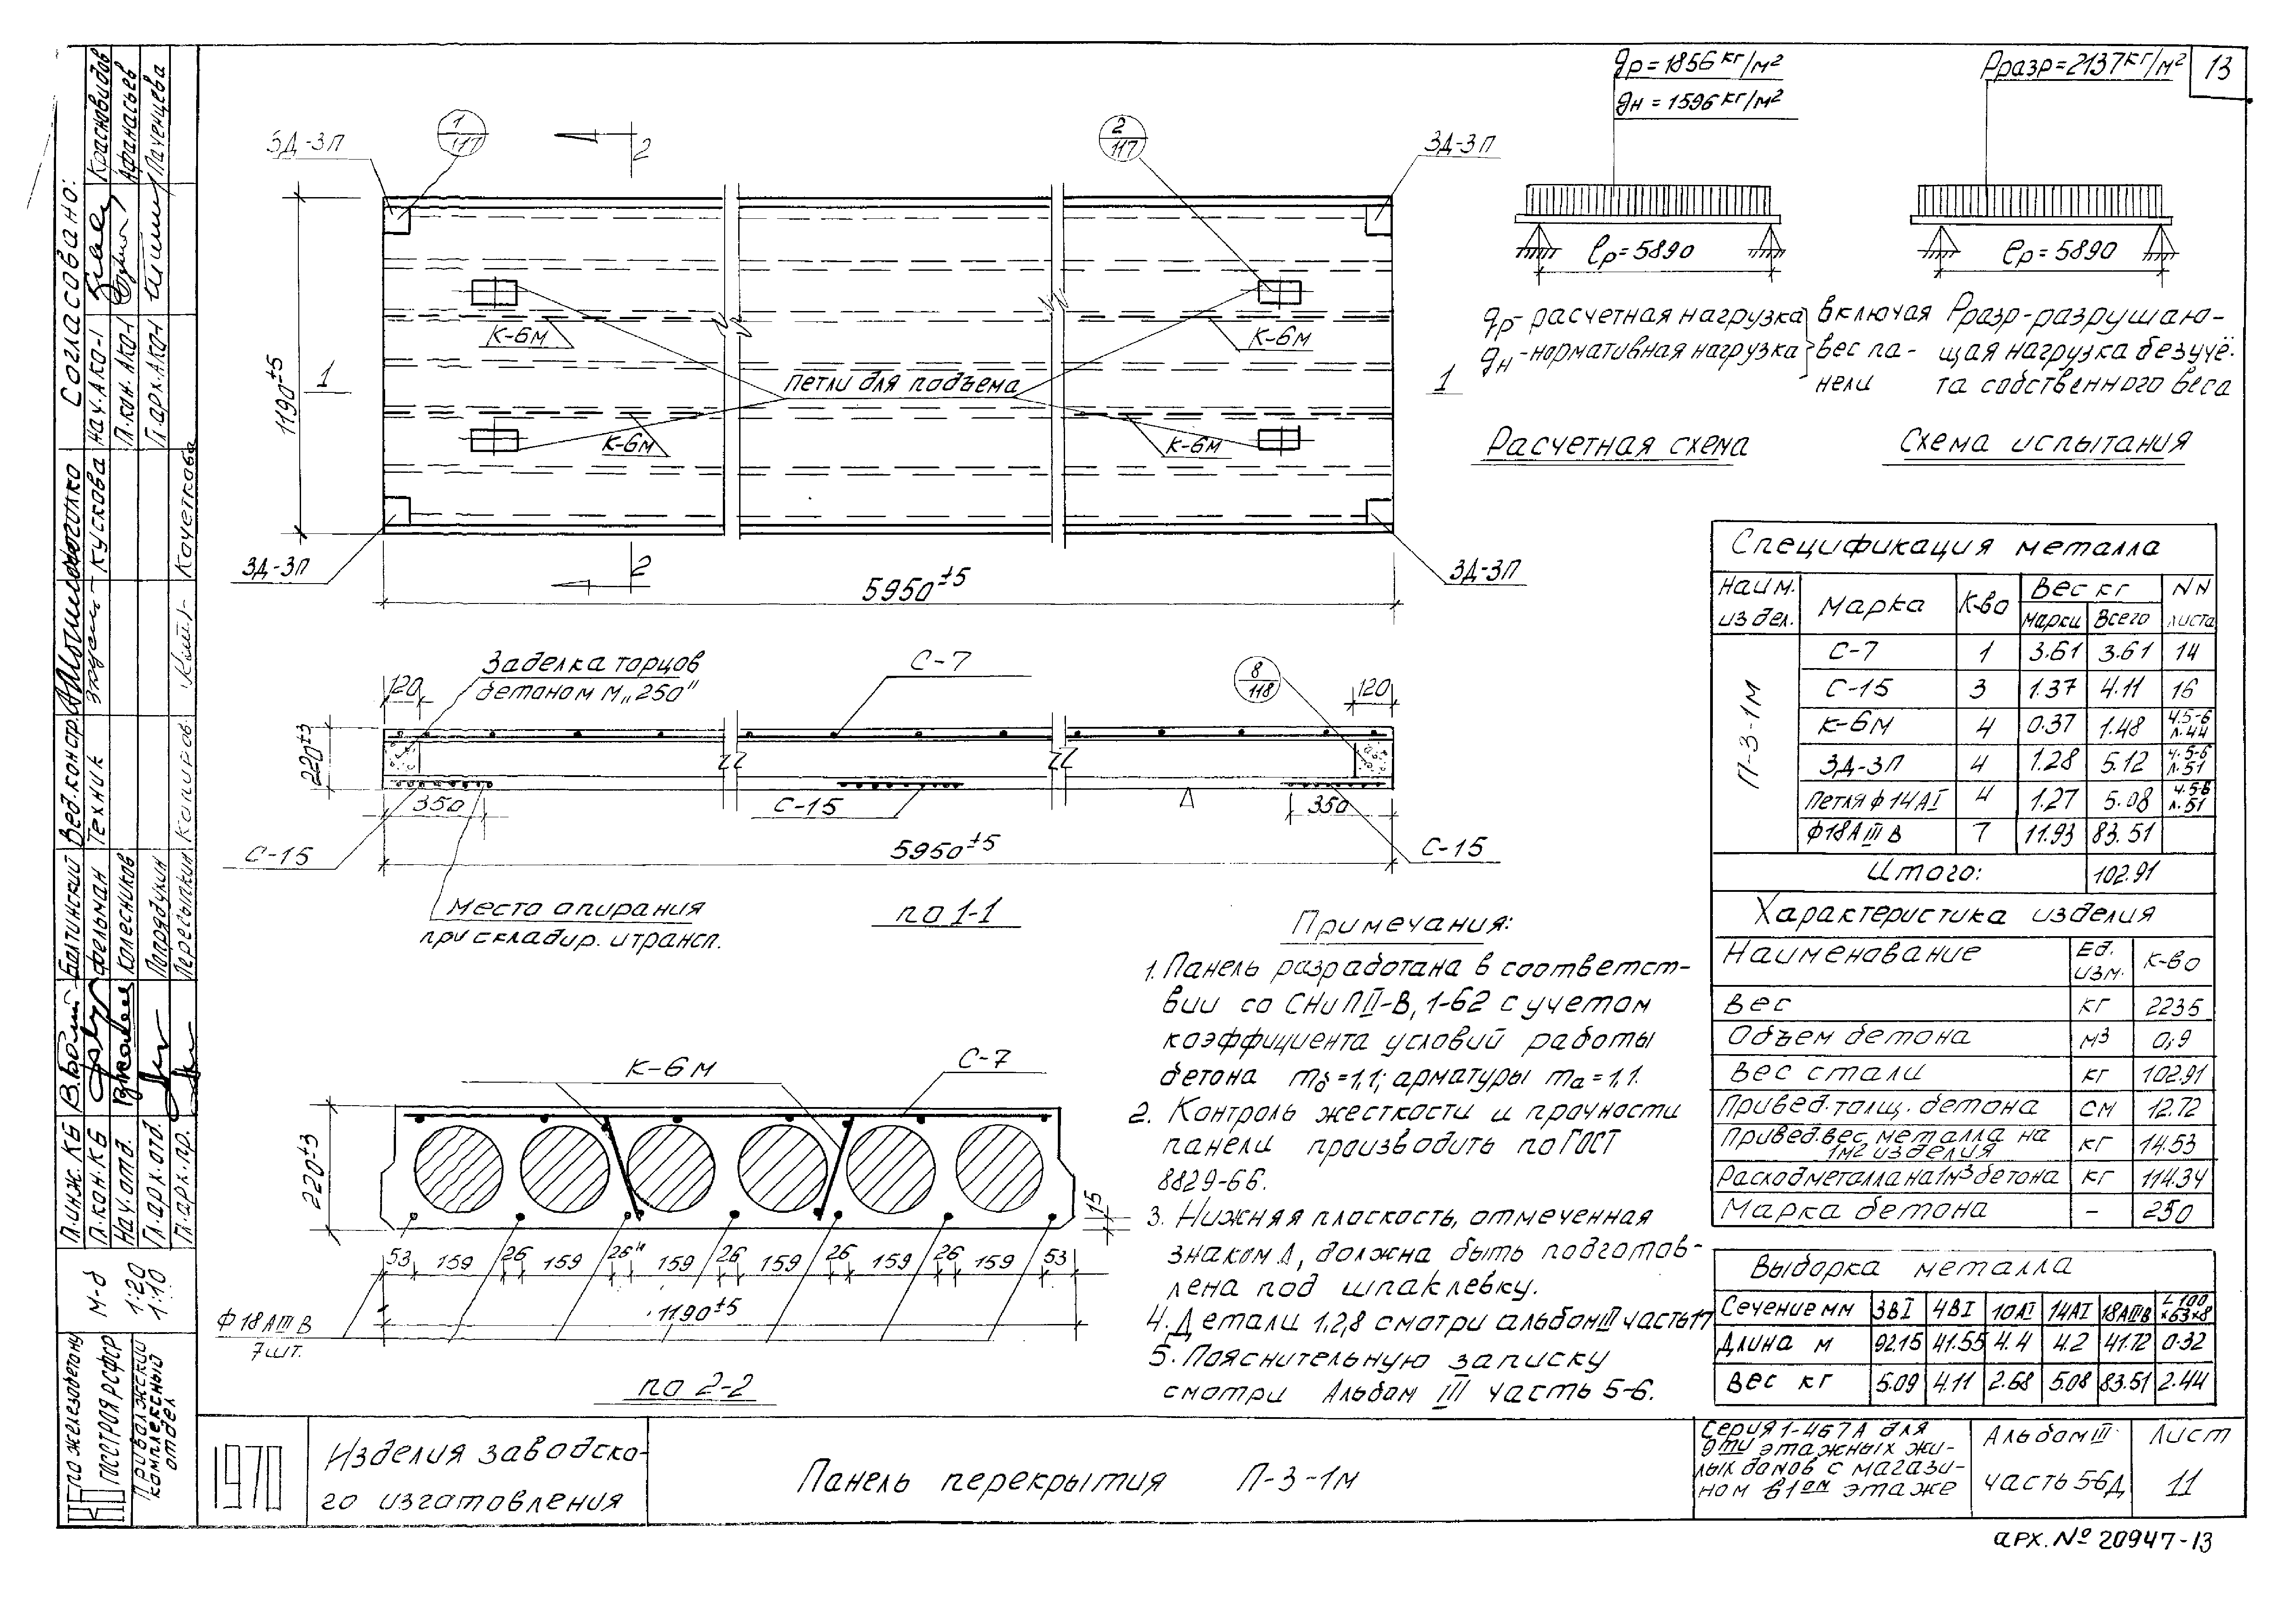 13
qр=1856 кг/м²
qн=1596 кг/м²
Рразр=2137 кг/м²
ℓр=5890
ℓр=5890
qр-расчетная нагрузка
qн-нормативная нагрузка
включая
вес па-
нели
Рразр-разрушаю-
щая нагрузка без учё-
та собственного веса
Расчетная схема
Схема испытания
ЗД-3П
1
117
2
2
117
ЗД-3П
1190±5
1
К-6м
К-6м
петли для подъема
1
К-6м
К-6м
ЗД-3П
2
ЗД-3П
5950±5
Заделка торцов
бетоном М„250"
С-7
8
118
120
120
220±3
350
С-15
350
С-15
5950±5
С-15
Место опирания
при складир. и трансп.
по 1-1
К-6м
С-7
220±3
15
53 159 26 159 26 159 26 159 26 159 26 159 53
1190±5
Ф 18 АIIIВ
7шт.
по 2-2
Примечания:
1. Панель разработана в соответст-
вии со СНиПII-В, 1-62 с учетом
коэффициента условий работы
бетона mб=1,1; арматуры mа=1,1.
2. Контроль жесткости и прочности
панели производить по ГОСТ
8829-66.
3. Нижняя плоскость, отмеченная
знаком Δ, должна быть подготов-
лена под шпаклевку.
4. Детали 1,2,8 смотри альбом III часть 17
5. Пояснительную записку
смотри Альбом III часть 5-6.
Спецификация металла
Наим. издел. Марка К-во Вес кг NN листа
марки Всего
П-3-1м
С-7 1 3.61 3.61 14
С-15 3 1.37 4.11 16
К-6м 4 0.37 1.48 ч.5-6 л.44
ЗД-3П 4 1.28 5.12 ч.5-6 л.51
Петля ф 14АI 4 1.27 5.08 ч.5-6 л.51
Ф18АIIIВ 7 11.93 83.51
Итого: 102.91
Характеристика изделия
Наименование Ед. изм. К-во
Вес кг 2235
Объем бетона м3 0,9
Вес стали кг 102.91
Привед. толщ. бетона см 12.72
Привед. вес металла на 1м2 изделия кг 14.53
Расход металла на 1м3 бетона кг 114.34
Марка бетона - 250
Выборка металла
Сечение мм 3ВI 4ВI 10АI 14АI 18АIIIВ L100×63×8
Длина м 92.15 41.55 4.4 4.2 41.72 0.32
Вес кг 5.09 4.11 2.68 5.08 83.51 2.44
Согласовано:
Нач. АКО-1 Красновидов
Гл. кон. АКО-1 Афанасьев
Гл. арх. АКО-1
Вед. констр.
Техник Кускова
Копиров. Кочеткова
Гл. инж. КБ Болтинский
Гл. кон. КБ Фельман
Нач. отд. Колесников
Гл. арх. отд. Попрядухин
Гл. арх. пр.
М-б 1:20
1:10
по железобетону
Госстроя РСФСР
Приволжский
комплексный
отдел
1970
Изделия заводско-
го изготовления
Панель перекрытия П-3-1м
Серия 1-467А для
9ти этажных жи-
лых домов с магази-
ном в 1ом этаже
Альбом III
часть 5-6Д
Лист
11
арх. № 20947-13